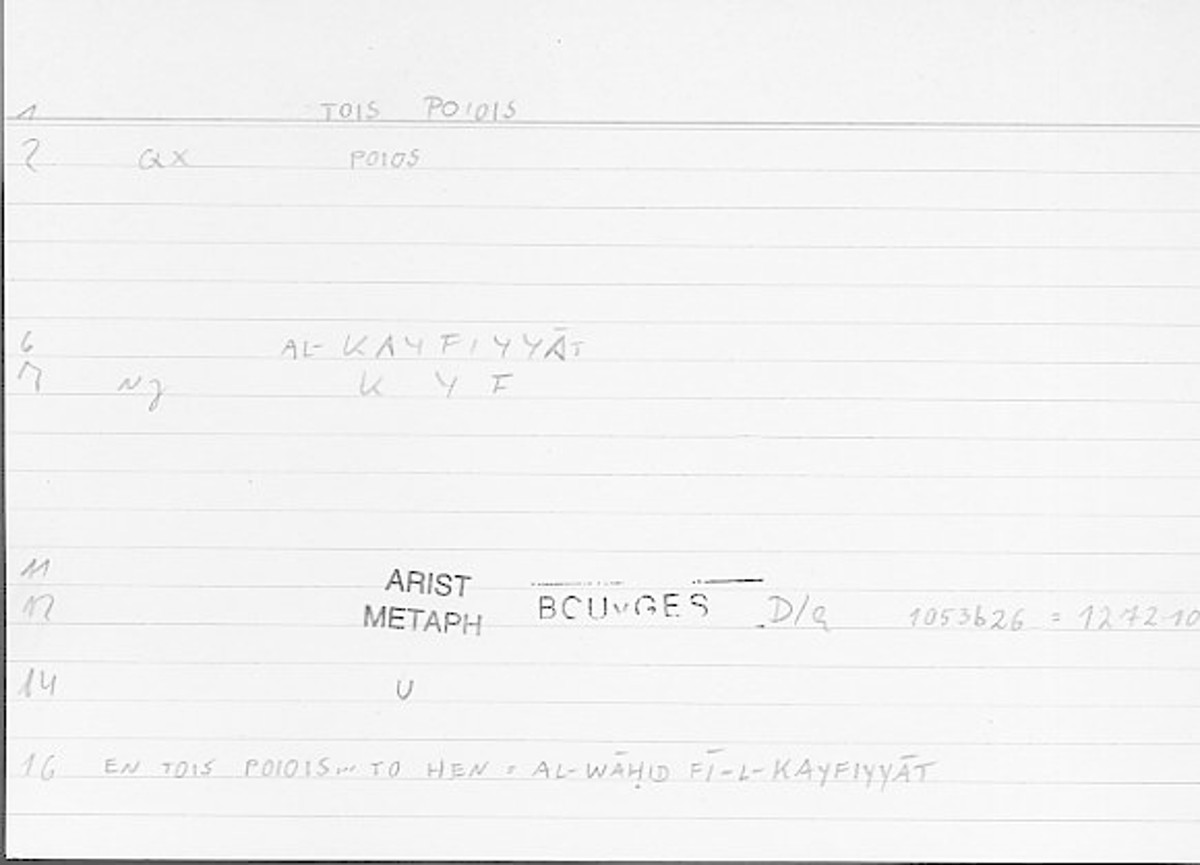 1 TOIS POIOIS
2 QX POIOS
6 AL-KAYFIYYĀT
7 NJ K Y F
11 ARIST
12 METAPH BOUYGES D/a 1053b26 = 1272.10
14 U
16 EN TOIS POIOIS... TO HEN = AL-WĀḤID FĪ-L-KAYFIYYĀT